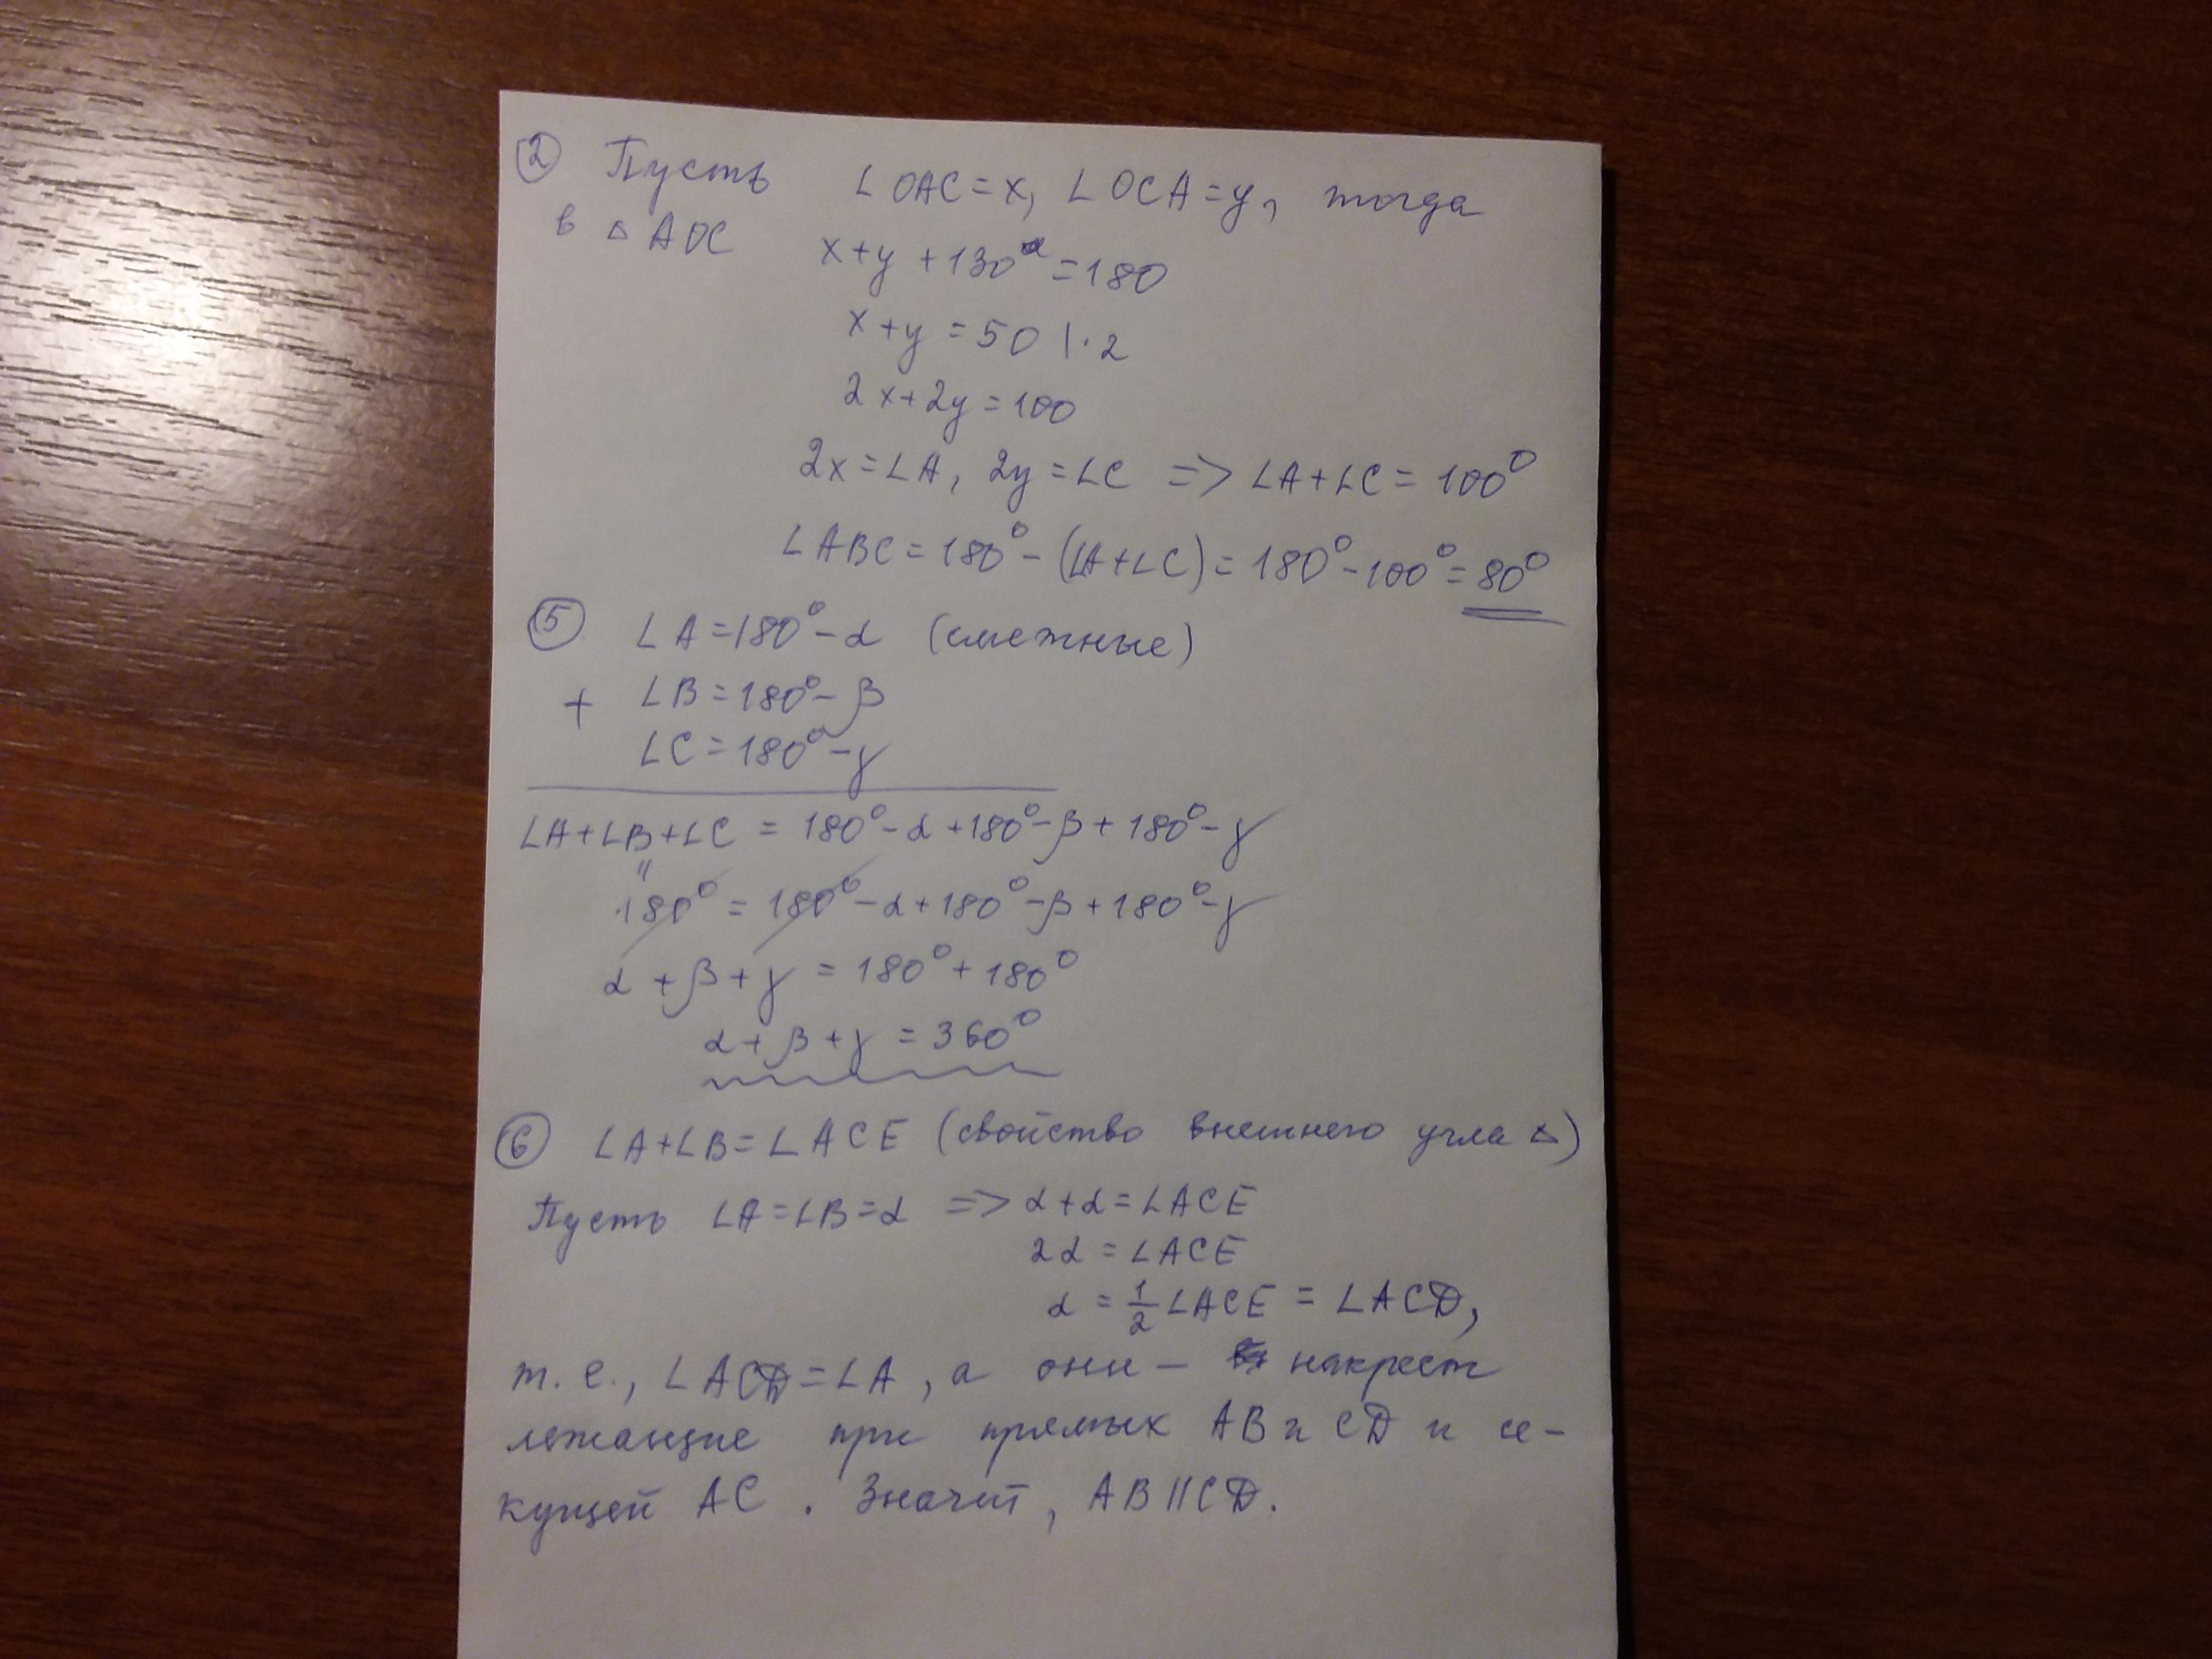 ② Пусть ∠OAC=x, ∠OCA=y, тогда
в △AOC x+y+130°=180
x+y=50 |·2
2x+2y=100
2x=∠A, 2y=∠C => ∠A+∠C=100°
∠ABC=180°-(∠A+∠C)=180°-100°=80°
⑤ ∠A=180°-α (смежные)
+ ∠B=180°-β
∠C=180°-γ
∠A+∠B+∠C=180°-α+180°-β+180°-γ
"
180°=180°-α+180°-β+180°-γ
α+β+γ=180°+180°
α+β+γ=360°
⑥ ∠A+∠B=∠ACE (свойство внешнего угла △)
Пусть ∠A=∠B=α => α+α=∠ACE
2α=∠ACE
α=1/2∠ACE=∠ACD,
т.е., ∠ACD=∠A, а они - накрест
лежащие при прямых AB и CD и се-
кущей AC. Значит, AB||CD.